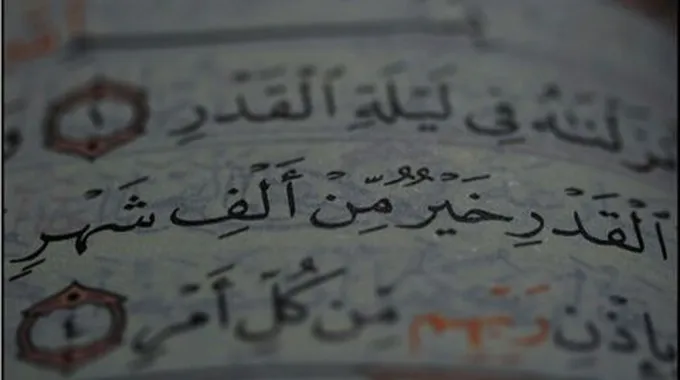 نزلنه فِى لَيْلَةِ ٱلْقَدْرِ ١
ٱلْقَدْرِ خَيْرٌ مِّنْ أَلْفِ شَهْرٍ
بِإِذْنِ رَبِّهِم مِّن كُلِّ أَمْرٍ ٤